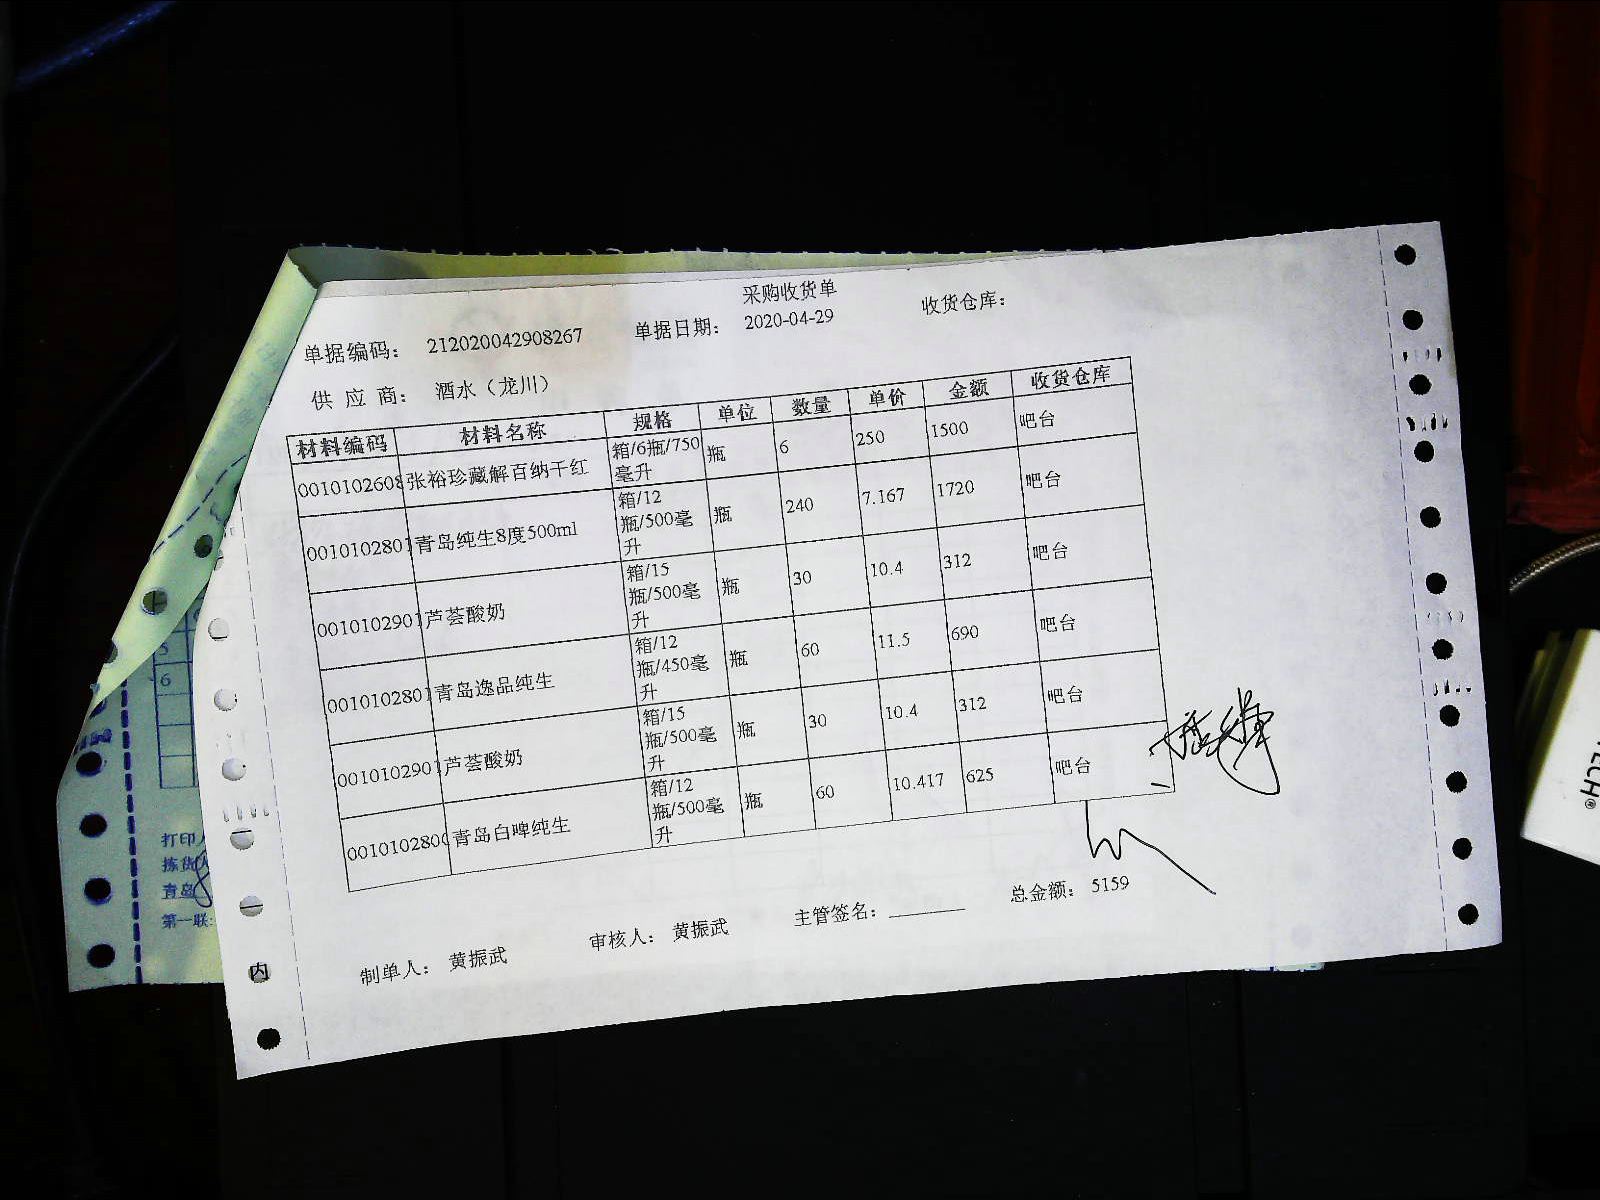 采购收货单
单据编码： 212020042908267 单据日期： 2020-04-29 收货仓库：
供 应 商： 酒水（龙川）
材料编码 材料名称 规格 单位 数量 单价 金额 收货仓库
0010102608 张裕珍藏解百纳干红 箱/6瓶/750毫升 瓶 6 250 1500 吧台
001010280 青岛纯生8度500ml 箱/12瓶/500毫升 瓶 240 7.167 1720 吧台
001010290 芦荟酸奶 箱/15瓶/500毫升 瓶 30 10.4 312 吧台
001010280 青岛逸品纯生 箱/12瓶/450毫升 瓶 60 11.5 690 吧台
001010290 芦荟酸奶 箱/15瓶/500毫升 瓶 30 10.4 312 吧台
001010280 青岛白啤纯生 箱/12瓶/500毫升 瓶 60 10.417 625 吧台
制单人： 黄振武 审核人： 黄振武 主管签名： 总金额： 5159
5
6
打印人
拣货人
青岛
第一联:
内